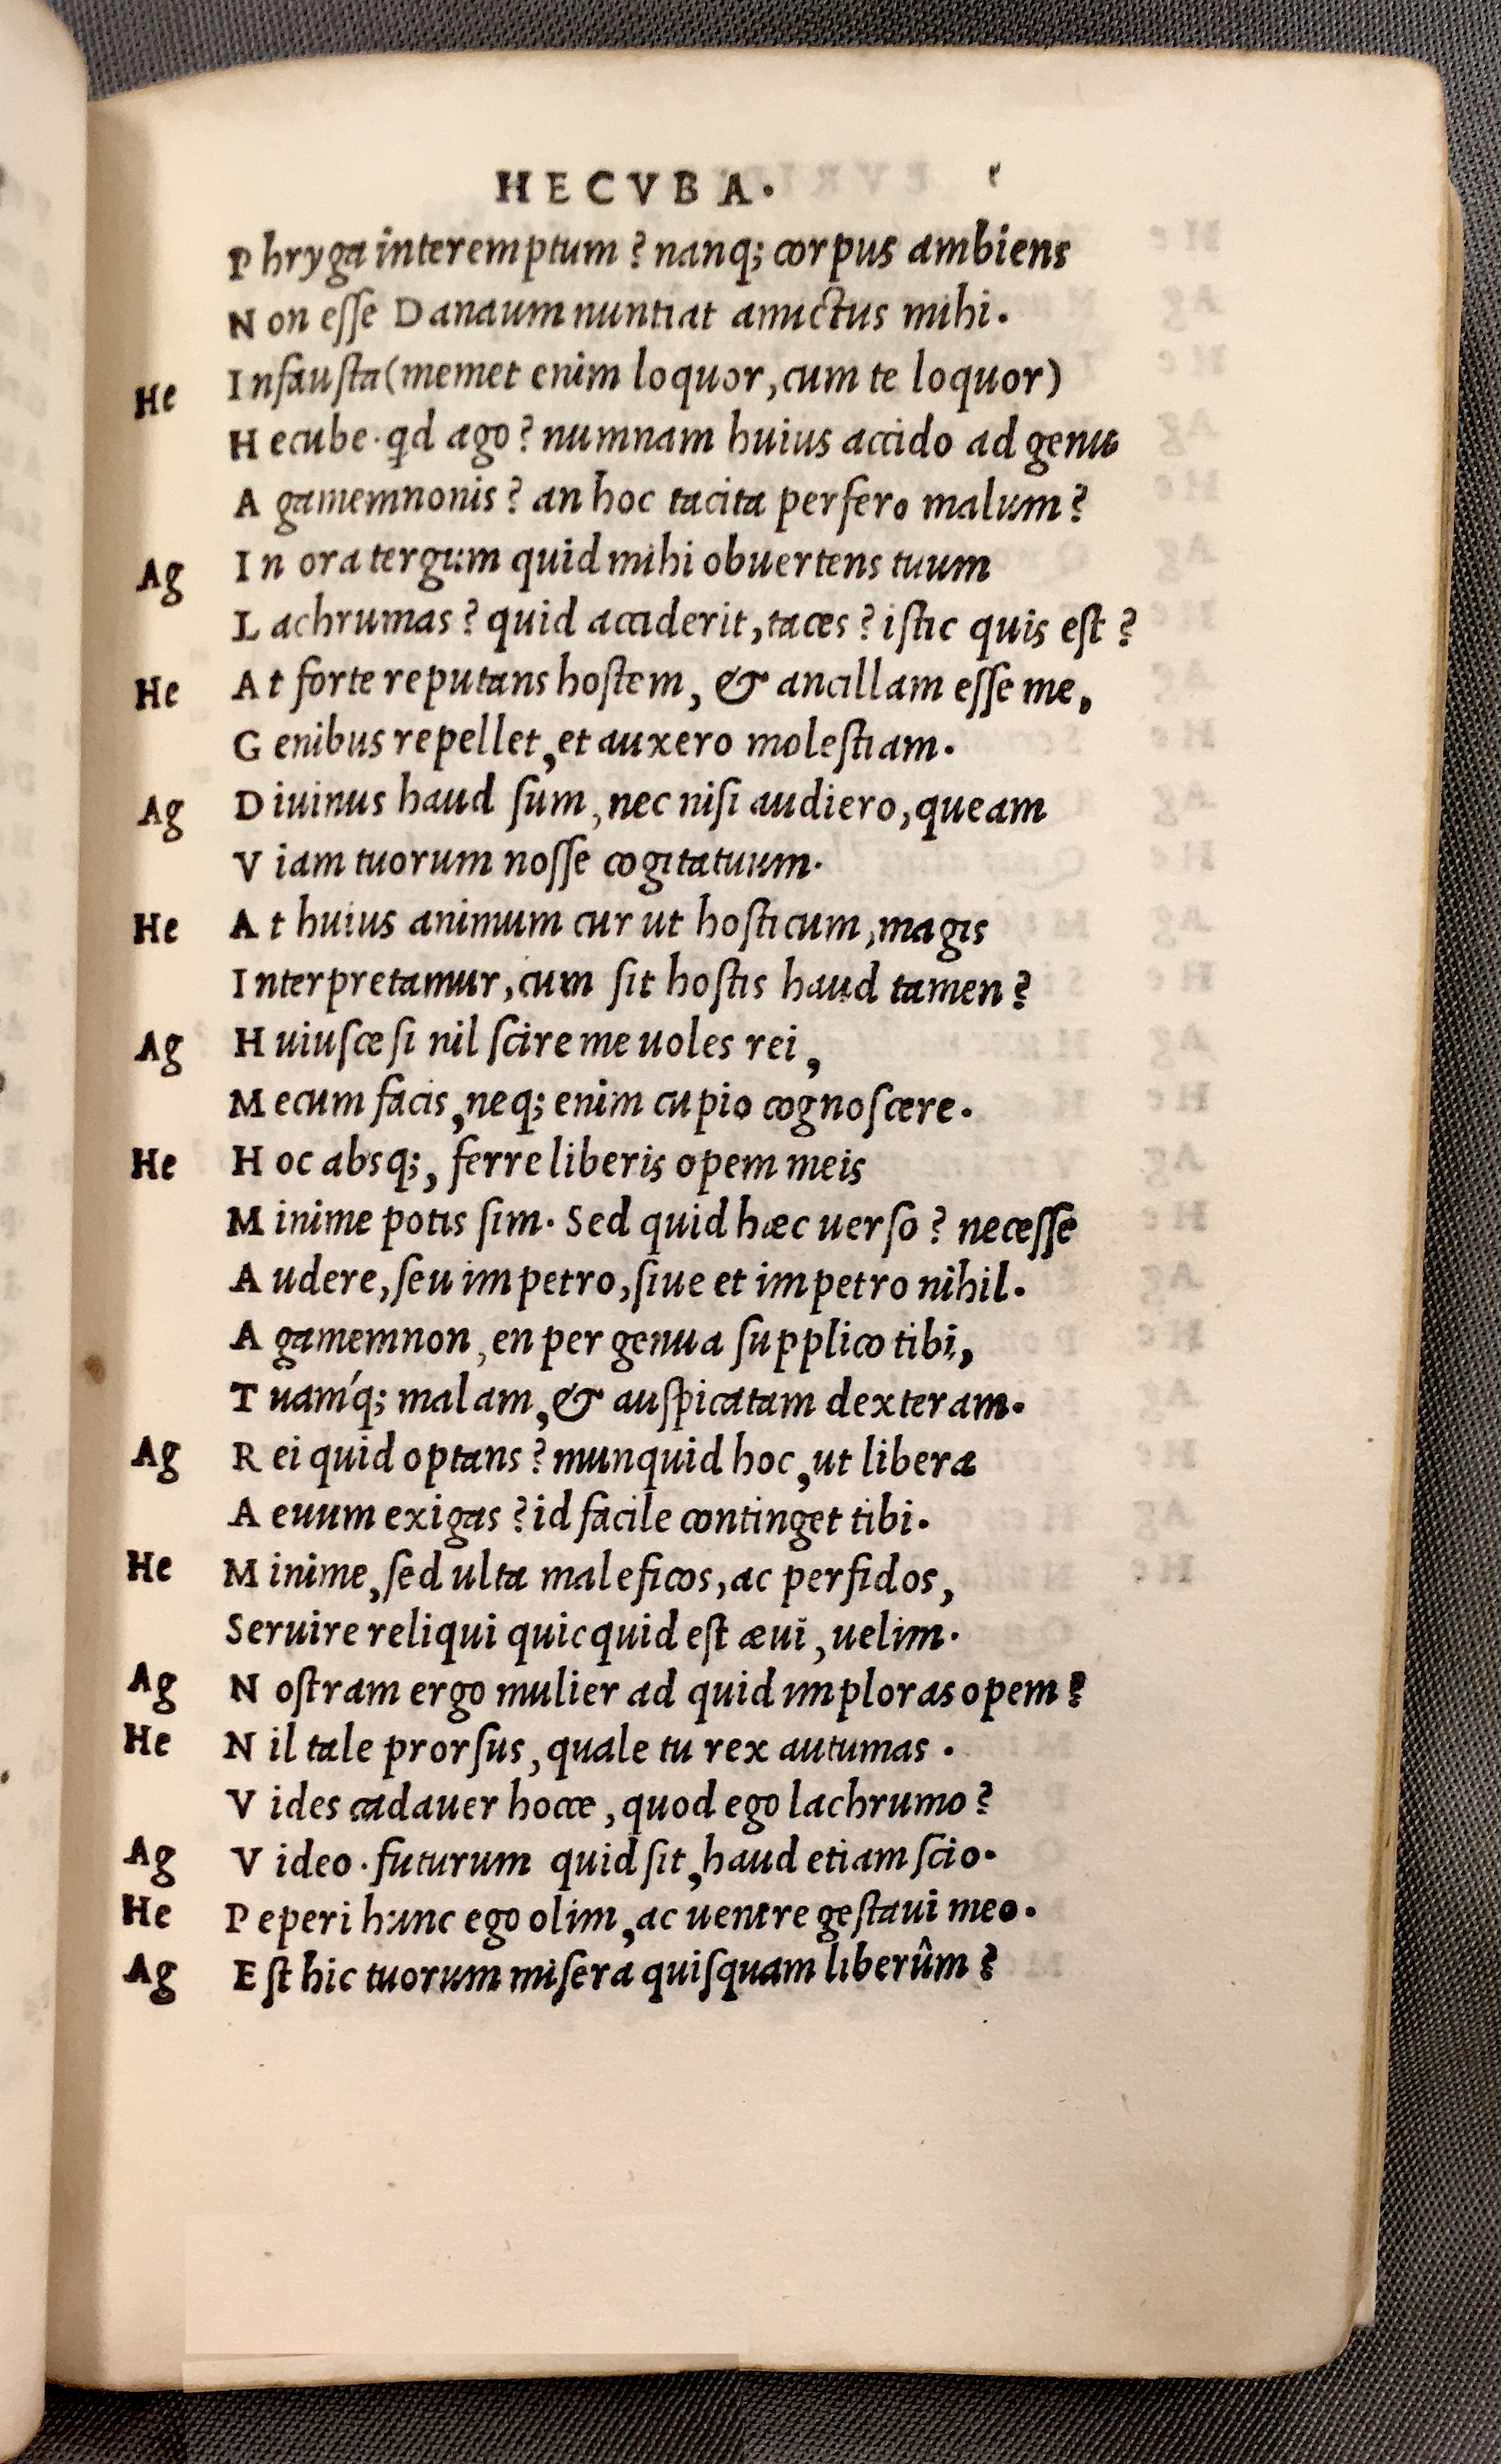 HECVBA.
Phryga interemptum? nanq; corpus ambiens
Non esse Danaum nuntiat amictus mihi.
He Infausta (memet enim loquor, cum te loquor)
Hecube. qd ago? numnam huius accido ad genu
Agamemnonis? an hoc tacita perfero malum?
Ag In ora tergum quid mihi obuertens tuum
Lachrumas? quid acciderit, taces? istic quis est?
He At forte reputans hostem, & ancillam esse me,
Genibus repellet, et auxero molestiam.
Ag Diuinus haud sum, nec nisi audiero, queam
Viam tuorum nosse cogitatuum.
He At huius animum cur ut hosticum, magis
Interpretamur, cum sit hostis haud tamen?
Ag Huiusce si nil scire me uoles rei,
Mecum facis, neq; enim cupio cognoscere.
He Hoc absq;, ferre liberis opem meis
Minime potis sim. Sed quid hæc uerso? necesse
Audere, seu impetro, siue et impetro nihil.
Agamemnon, en per genua supplico tibi,
Tuam´q; malam, & auspicatam dexteram.
Ag Rei quid optans? munquid hoc, ut libera
Aeuum exigas? id facile continget tibi.
He Minime, sed ulta maleficos, ac perfidos,
Seruire reliqui quicquid est æui, uelim.
Ag Nostram ergo mulier ad quid imploras opem?
He Nil tale prorsus, quale tu rex autumas.
Vides cadauer hocce, quod ego lachrumo?
Ag Video. futurum quid sit, haud etiam scio.
He Peperi hunc ego olim, ac uentre gestaui meo.
Ag Est hic tuorum misera quisquam liberûm?